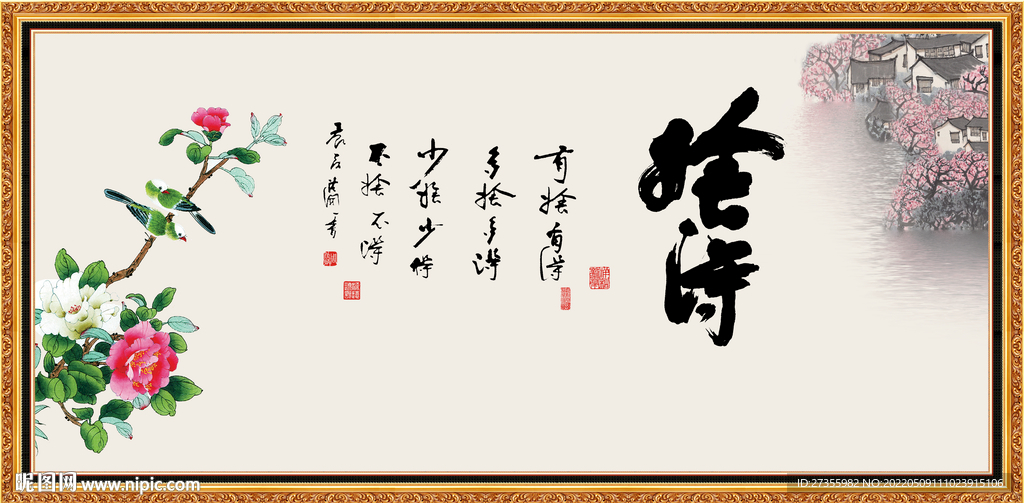 捨得
有捨有得
多捨多得
少捨少得
不捨不得
昵图网 www.nipic.com
ID:27355982 NO:20220509111023915106